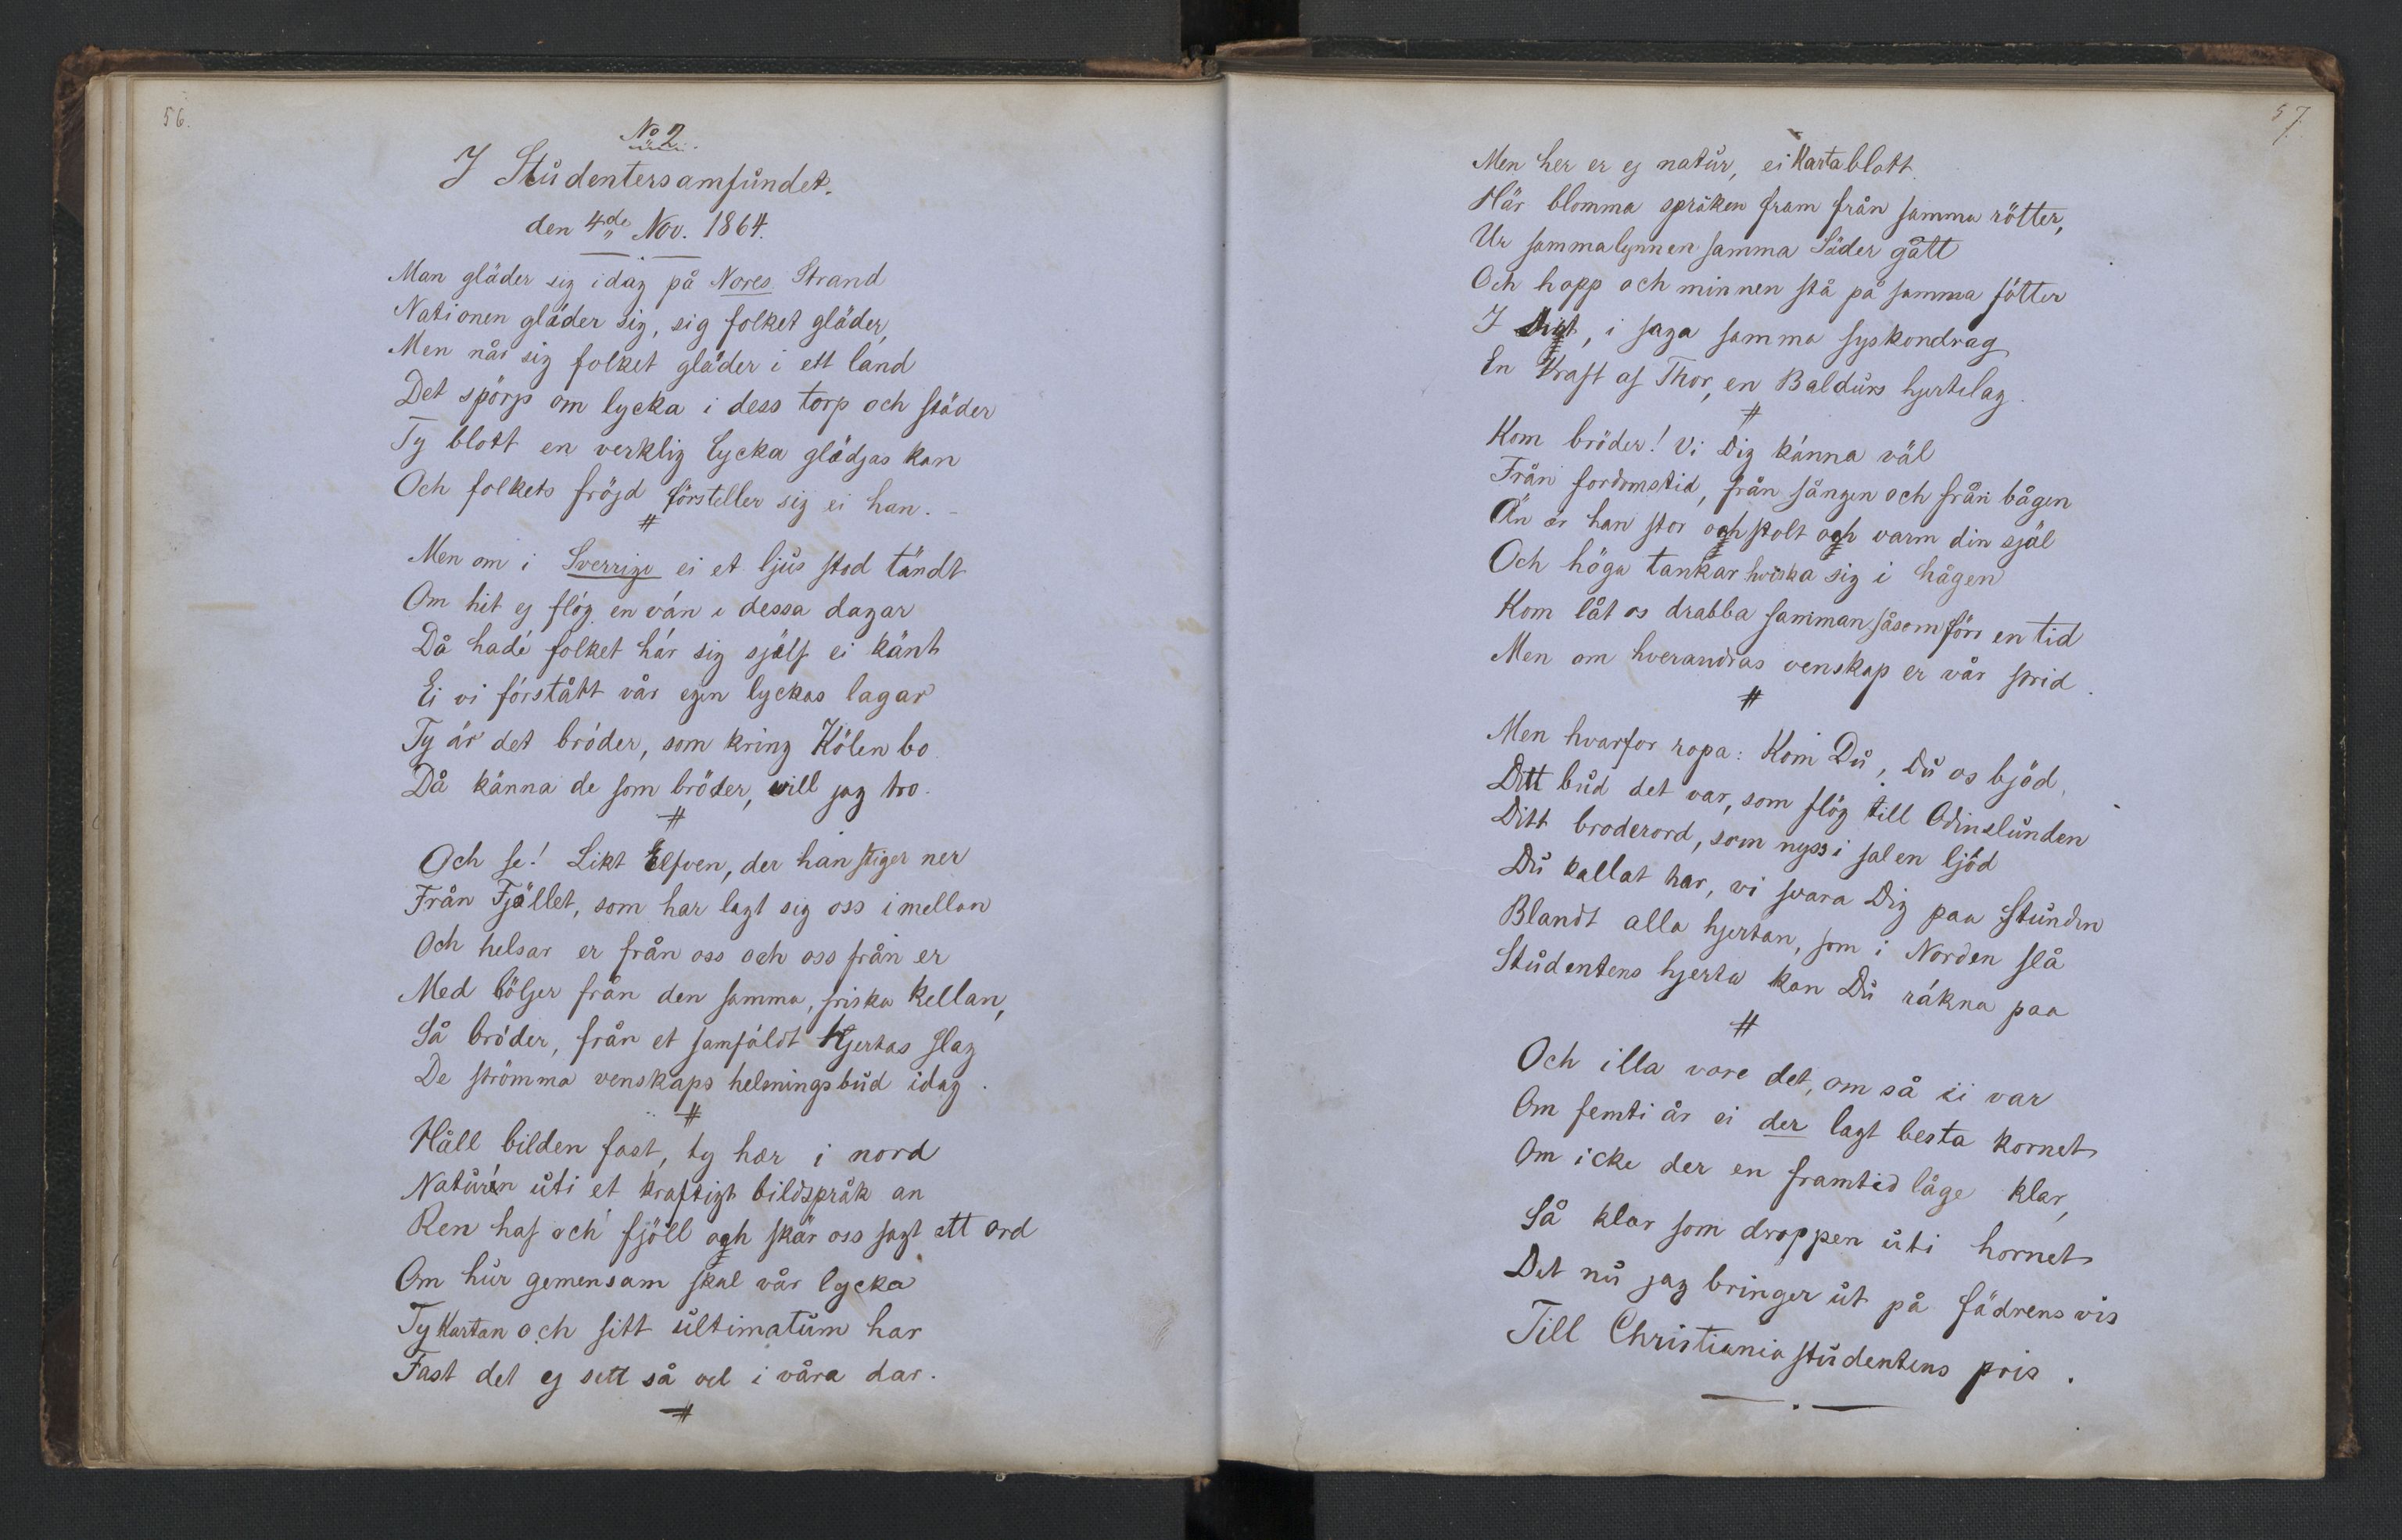 56.
No 2
I Studentersamfundet.
den 4de Nov. 1864.
Man gläder sig idag på Nores Strand
Nationen gläder sig, sig folket gläder,
Men når sig folket gläder i ett land
Det spörjs om lycka i dess torp och städer
Ty blott en verklig lycka glädjas kan
Och folkets fröjd försteller sig ei han. –
#
Men om i Sverrige ei et ljus stod tändt
Om hit ej flög en vän i dessa dagar
Då hade folket här sig sjelf ei känt
Ei vi förstått vår egen lyckas lagar
Ty är det bröder, som kring Kölen bo
Då känna de som bröder, vill jag tro.
#
Och se! Likt Elfven, der han stiger ner
Från Fjället, som har lagt sig oss imellan
Och helsar er från oss och oss från er
Med böljer från den samma, friska kellan,
Så bröder, från et samfäldt Hjertas slag
De strömma venskaps helsningsbud idag.
#
Håll bilden fast, ty hær i nord
Naturen uti et kraftigt bildspråk an
Ren haf och fjöll och skär oss sagt ett ord
Om hur gemensam skal vår lycka
Ty Kartan och sitt ultimatum har
Fast det ej sett så vel i våra dar.
#
57.
Men her er ej natur, ei Karta blott
Här blomma språken fram från samma rötter,
Ur samma lynnen samma Säder gått
Och hopp och minnen stå på samma fötter
I , i saga samma syskondrag
En Kraft af Thor, en Baldurs hjertelag.
#
Kom bröder! Vi Dig känna väl
Från fordomstid, från sången och från bågen
Än är han stor och stolt och varm din själ
Och höga tankar hviska sig i hågen
Kom låt os drabba samman såsom förr en tid
Men om hverandras venskap er vår strid.
#
Men hvarfor ropa: Kom Du, Du os bjöd,
Ditt bud det var, som flög till Odinslunden
Ditt broderord, som nyss i salen ljöd
Du kallat har, vi svara Dig paa Stunden
Blandt alla hjertan, som i Norden slå
Studentens hjerta kan Du räkna paa
#
Och illa vore det, om så ei var
Om femti år ei der lagt besta kornet
Om icke der en framtid låge klar,
Så klar som droppen uti hornet
Det nu jag bringer ut på fädrens vis
Till Christiania studentens pris.